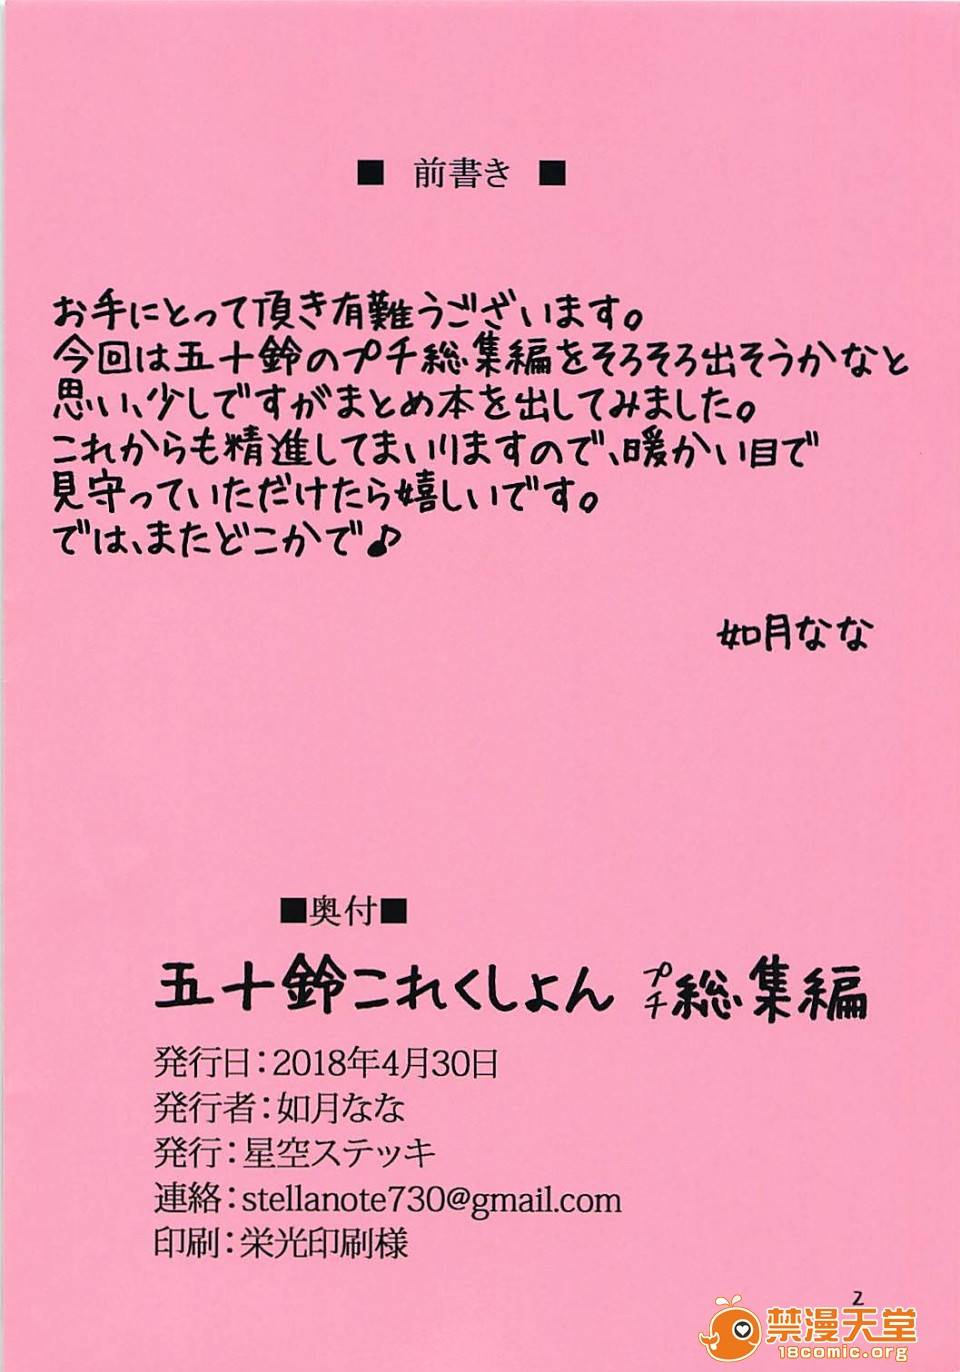 ■ 前書き ■
お手にとって頂き有難うございます。
今回は五十鈴のプチ総集編をそろそろ出そうかなと
思い、少しですがまとめ本を出してみました。
これからも精進してまいりますので、暖かい目で
見守っていただけたら嬉しいです。
では、またどこかで♪
如月なな
■奥付■
五十鈴これくしょん プチ総集編
発行日：2018年4月30日
発行者：如月なな
発行：星空ステッキ
連絡：stellanote730@gmail.com
印刷：栄光印刷様
2
禁漫天堂
18comic.org